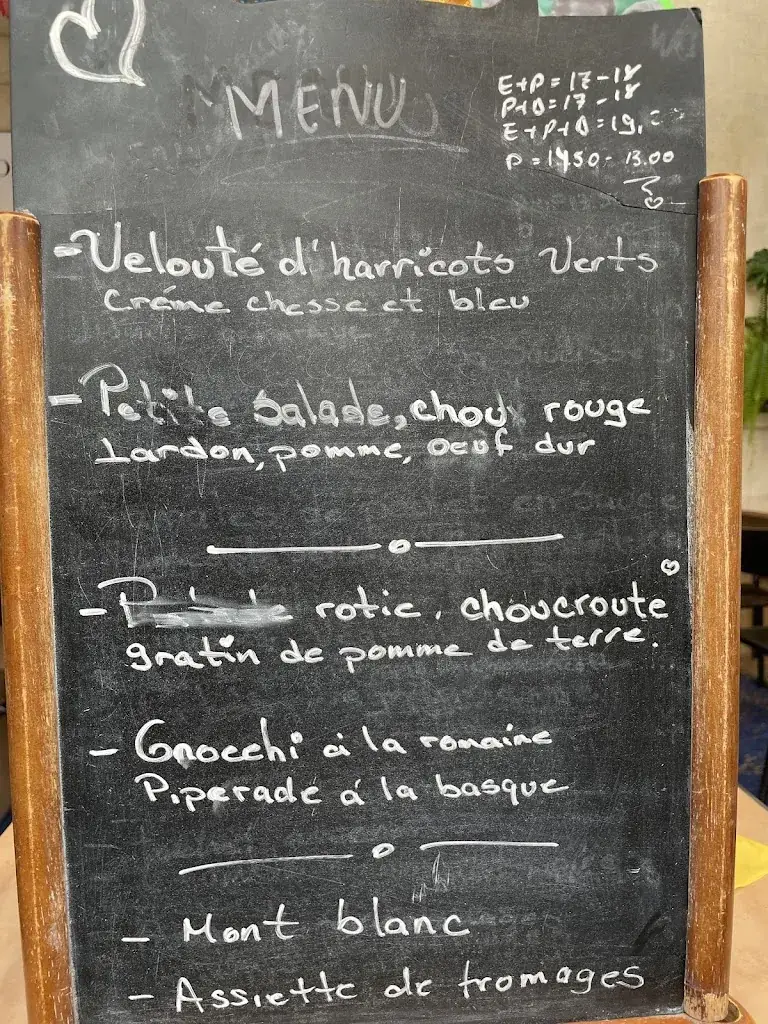 MENU
E+P = 17 - 18
P+D = 17 - 18
E+P+D = 19,
P = 14.50 - 13.00
- Velouté d'harricots Verts
Créme chesse et bleu
- Petite Salade, choux rouge
Lardon, pomme, oeuf dur
- rotie, choucroute
gratin de pomme de terre.
- Gnocchi à la romaine
Piperade á la basque
- Mont blanc
- Assiette de fromages